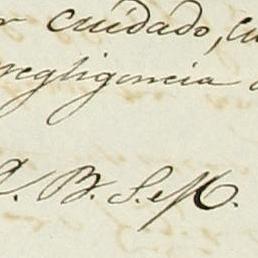 r cuidado, cu
negligencia
B. S. M.